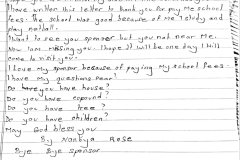 I have written this letter to thank you for pay me school
fees. The school was good because of me I study and
play netball.
I want to see you sponser but you not near me.
Now I am missing you. I hope it will be one day I will
come to visit you.
I love my sponser because of paying my school fees.
I have my questions near!
Do have you have house?
Do you have copound?
Do you have tree?
Do you have children?
May God bless you
By Nantya Rose
Bye Bye sponsor